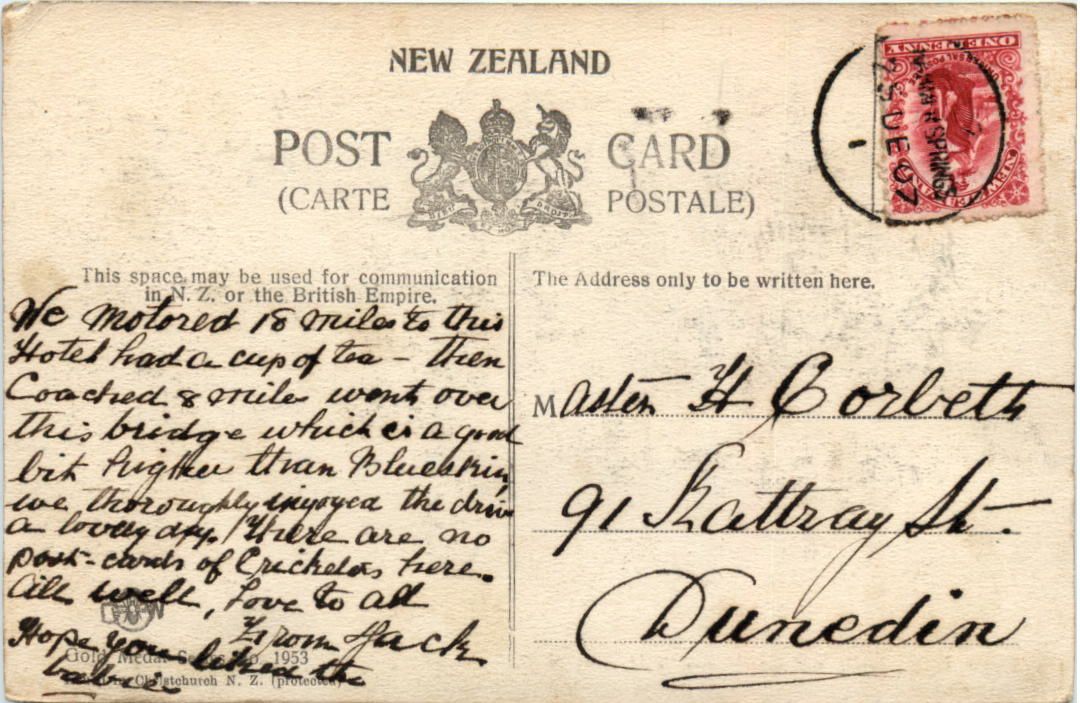 NEW ZEALAND
POST CARD
(CARTE POSTALE)
DIEU DROIT
ONE PENNY
UNIVERSAL POSTAGE
NEW ZEALAND
SPRINGS
DE 07
This space may be used for communication
in N. Z. or the British Empire.
The Address only to be written here.
We motored 18 miles to this
Hotel had a cup of tea — then
Coached 8 miles went over
this bridge which is a good
bit higher than Blueskin,
we thoroughly injoyed the drive
a lovely day. There are no
post-cards of Cricketers here.
All well, Love to all
From Jack
Hope you liked the
Master H Corbett
91 Rattray St.
Dunedin
Gold Medal Series No. 1953
Christchurch N. Z. (protected)